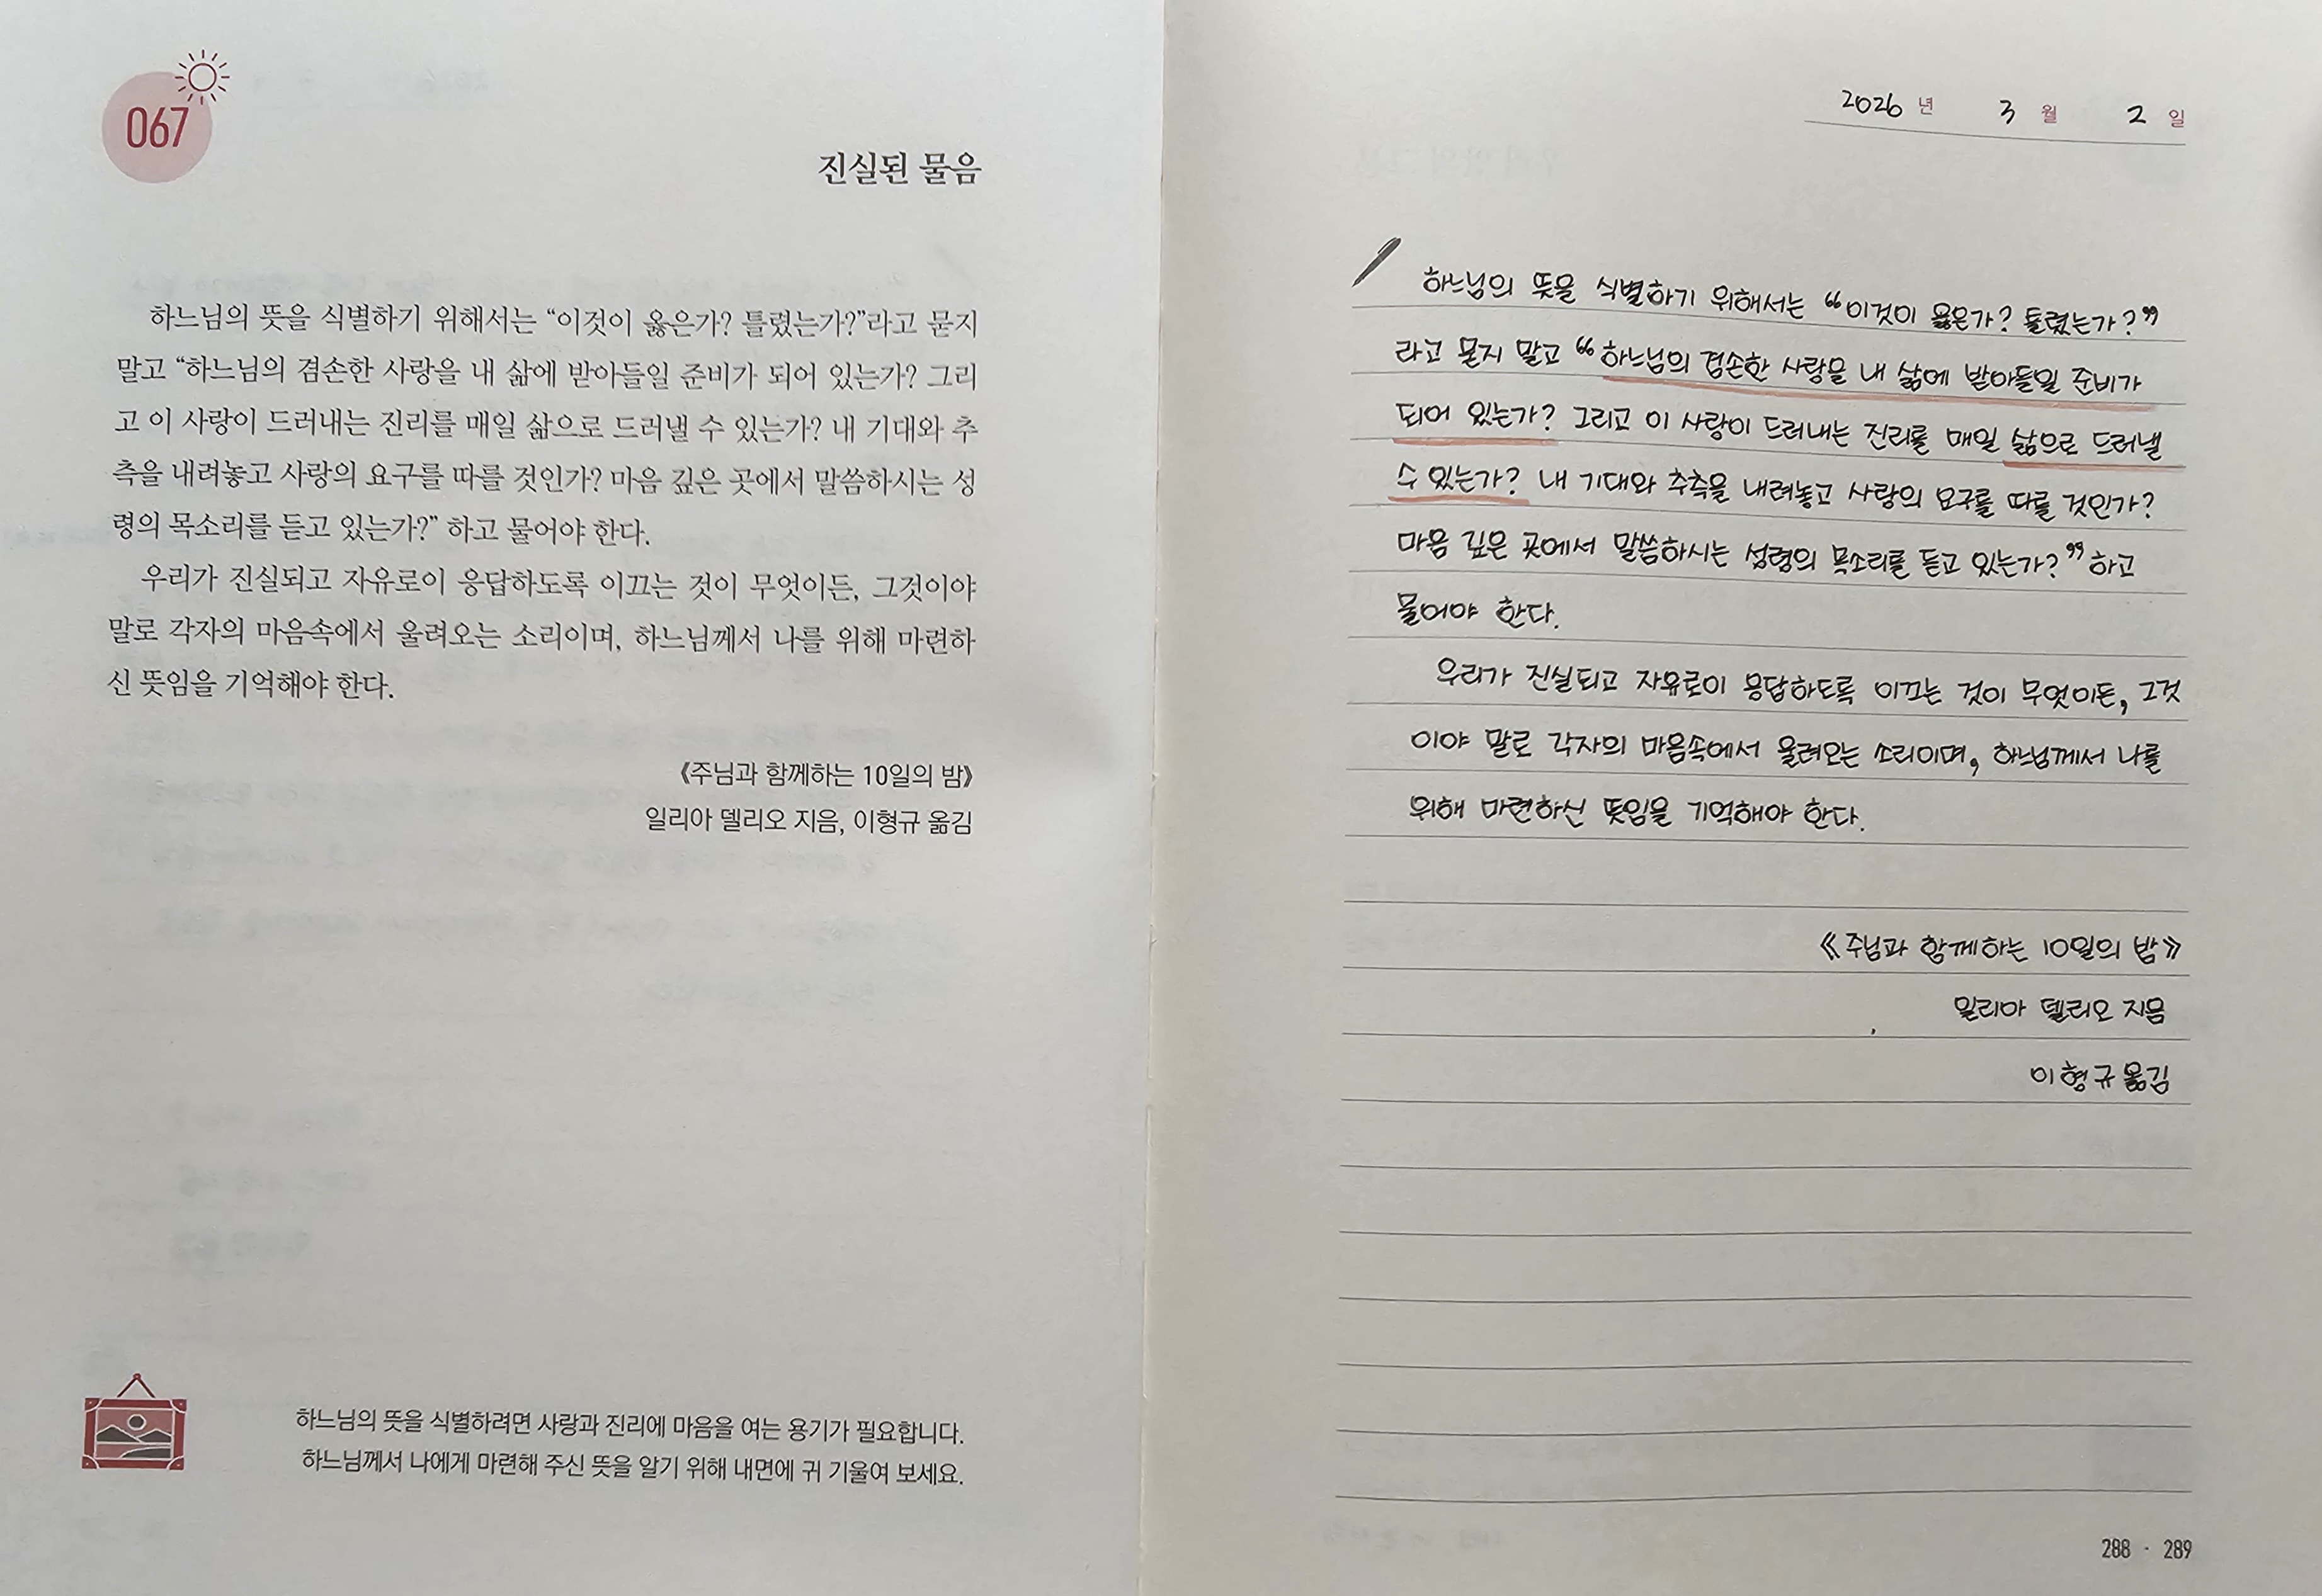 067
진실된 물음
하느님의 뜻을 식별하기 위해서는 “이것이 옳은가? 틀렸는가?”라고 묻지
말고 “하느님의 겸손한 사랑을 내 삶에 받아들일 준비가 되어 있는가? 그리
고 이 사랑이 드러내는 진리를 매일 삶으로 드러낼 수 있는가? 내 기대와 추
측을 내려놓고 사랑의 요구를 따를 것인가? 마음 깊은 곳에서 말씀하시는 성
령의 목소리를 듣고 있는가?” 하고 물어야 한다.
우리가 진실되고 자유로이 응답하도록 이끄는 것이 무엇이든, 그것이야
말로 각자의 마음속에서 울려오는 소리이며, 하느님께서 나를 위해 마련하
신 뜻임을 기억해야 한다.
《주님과 함께하는 10일의 밤》
일리아 델리오 지음, 이형규 옮김
하느님의 뜻을 식별하려면 사랑과 진리에 마음을 여는 용기가 필요합니다.
하느님께서 나에게 마련해 주신 뜻을 알기 위해 내면에 귀 기울여 보세요.
2026 년 3 월 2 일
하느님의 뜻을 식별하기 위해서는 “이것이 옳은가? 틀렸는가?”
라고 묻지 말고 “하느님의 겸손한 사랑을 내 삶에 받아들일 준비가
되어 있는가? 그리고 이 사랑이 드러내는 진리를 매일 삶으로 드러낼
수 있는가? 내 기대와 추측을 내려놓고 사랑의 요구를 따를 것인가?
마음 깊은 곳에서 말씀하시는 성령의 목소리를 듣고 있는가?” 하고
물어야 한다.
우리가 진실되고 자유로이 응답하도록 이끄는 것이 무엇이든, 그것
이야 말로 각자의 마음속에서 울려오는 소리이며, 하느님께서 나를
위해 마련하신 뜻임을 기억해야 한다.
《주님과 함께하는 10일의 밤》
일리아 델리오 지음
이형규 옮김
288 · 289